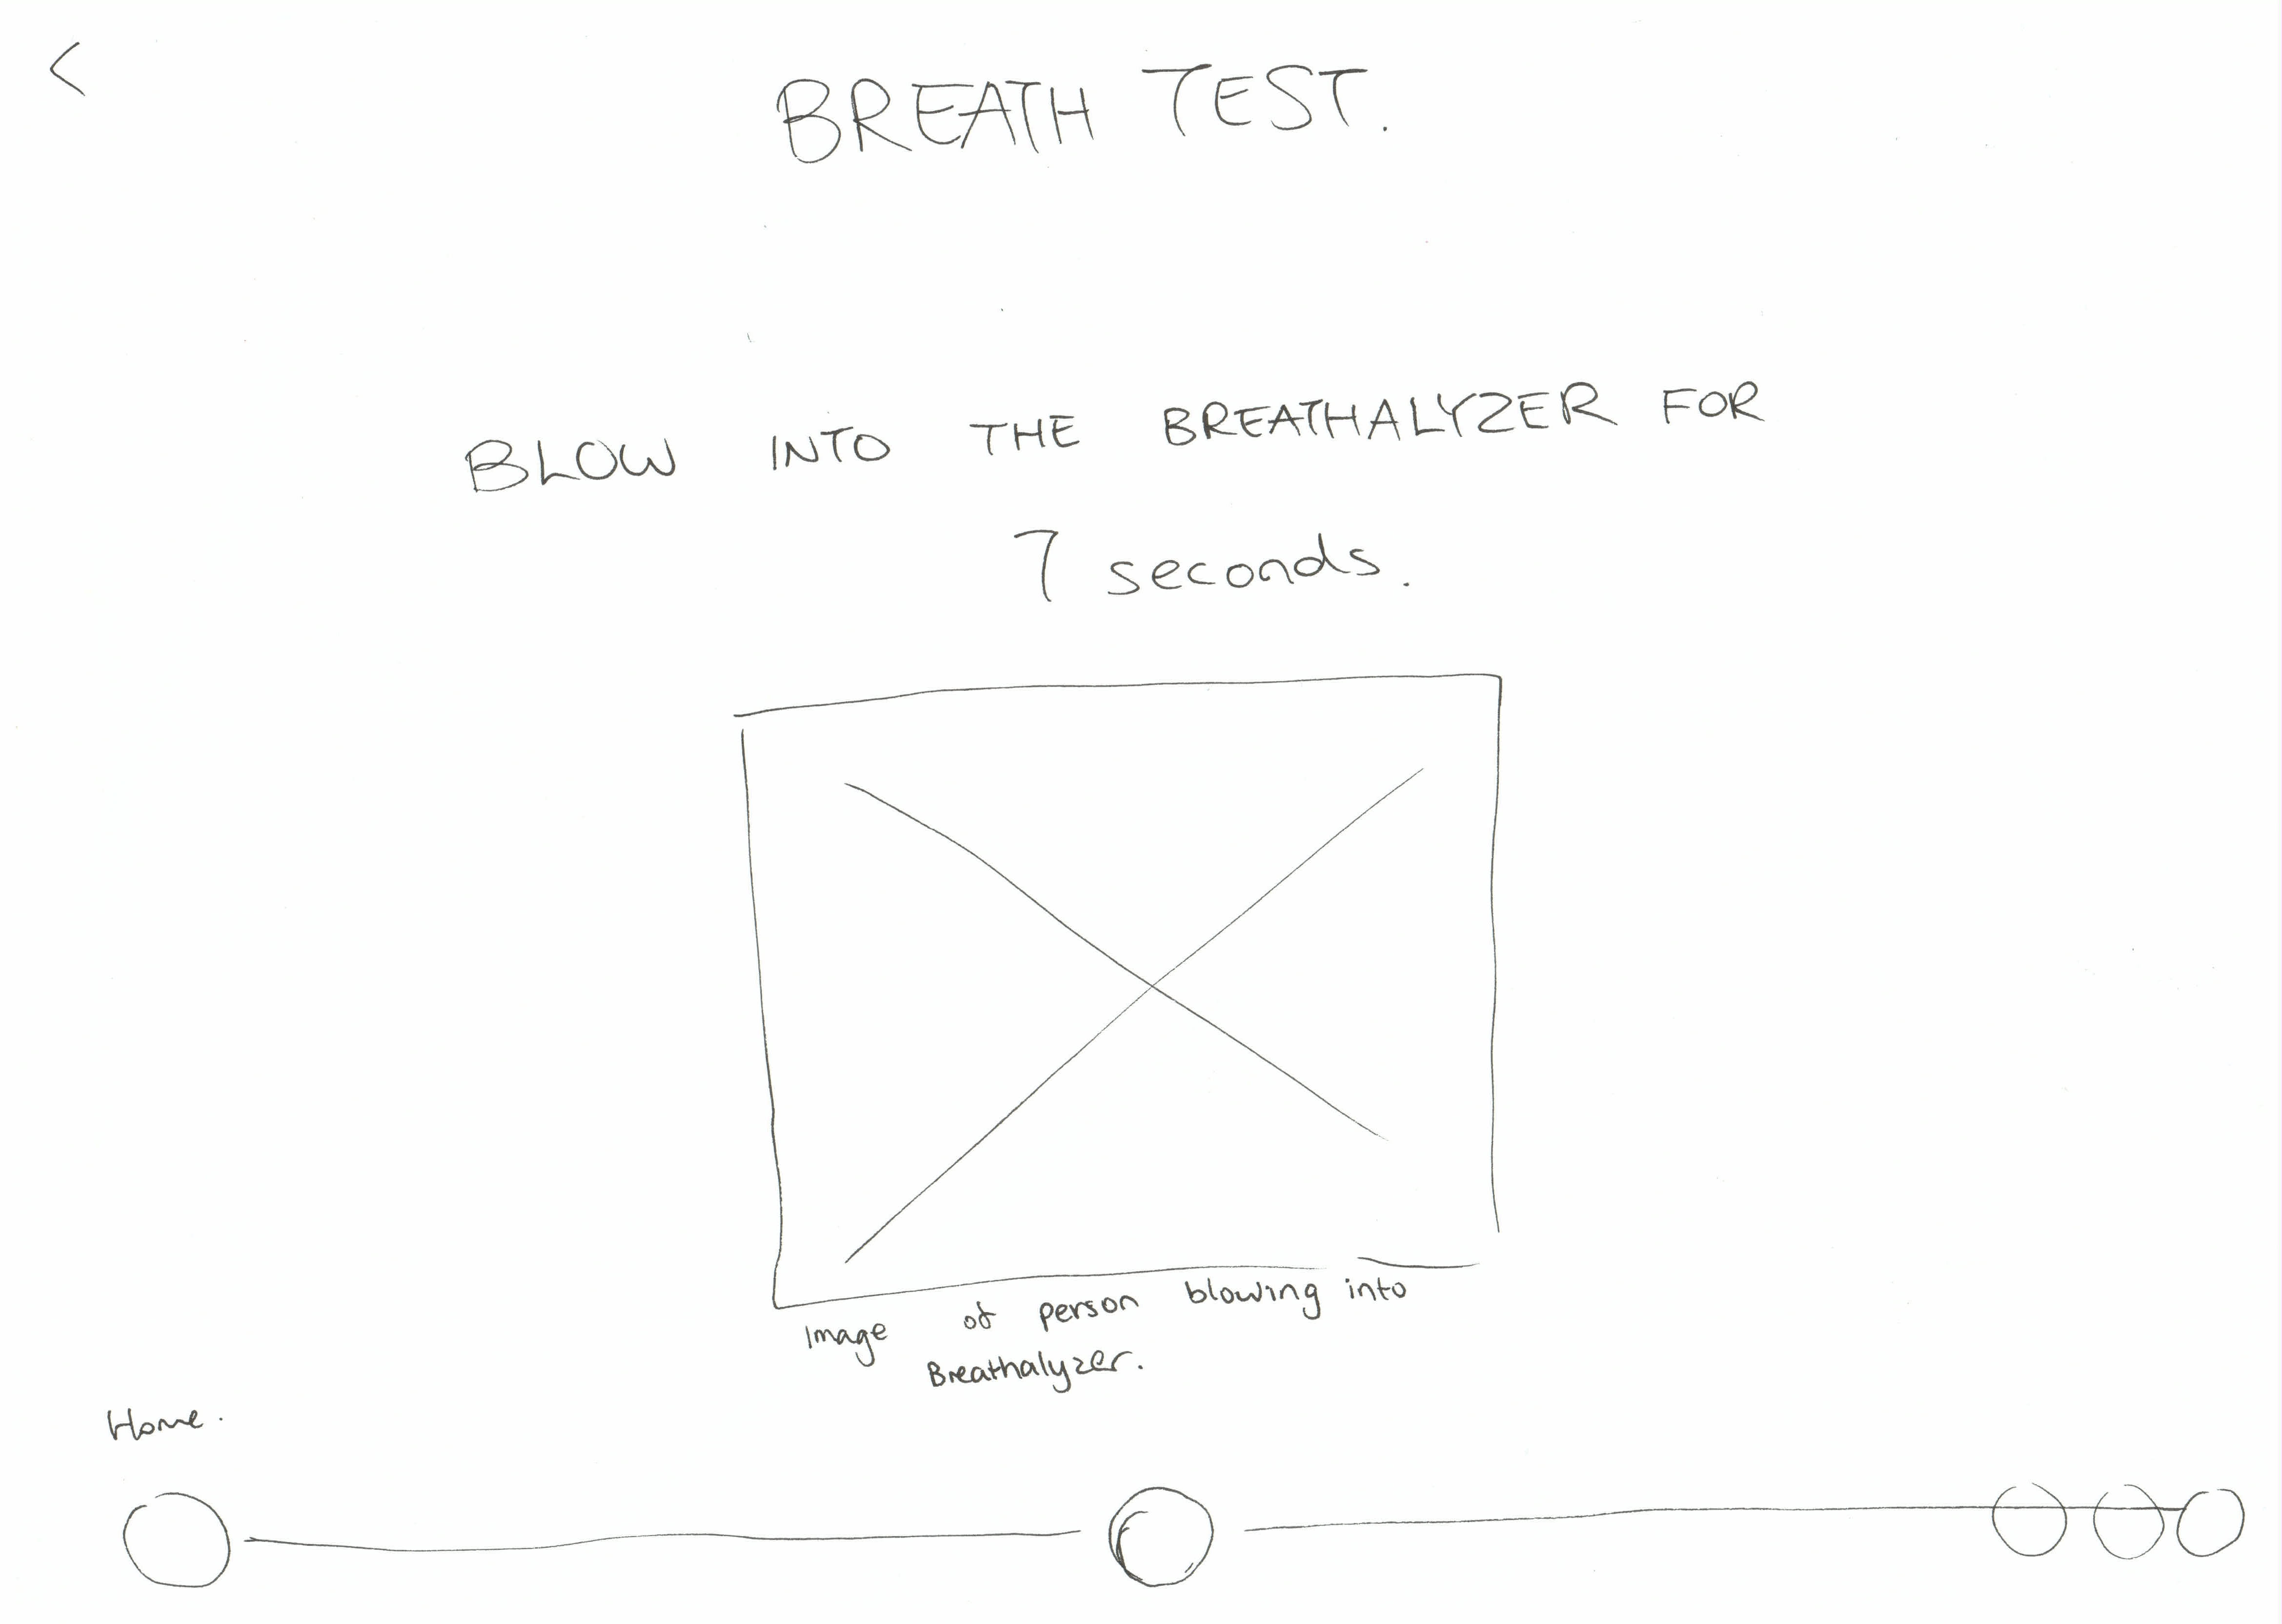 <
BREATH TEST.
BLOW INTO THE BREATHALYZER FOR
7 seconds.
Image of person blowing into
Breathalyzer.
Home.